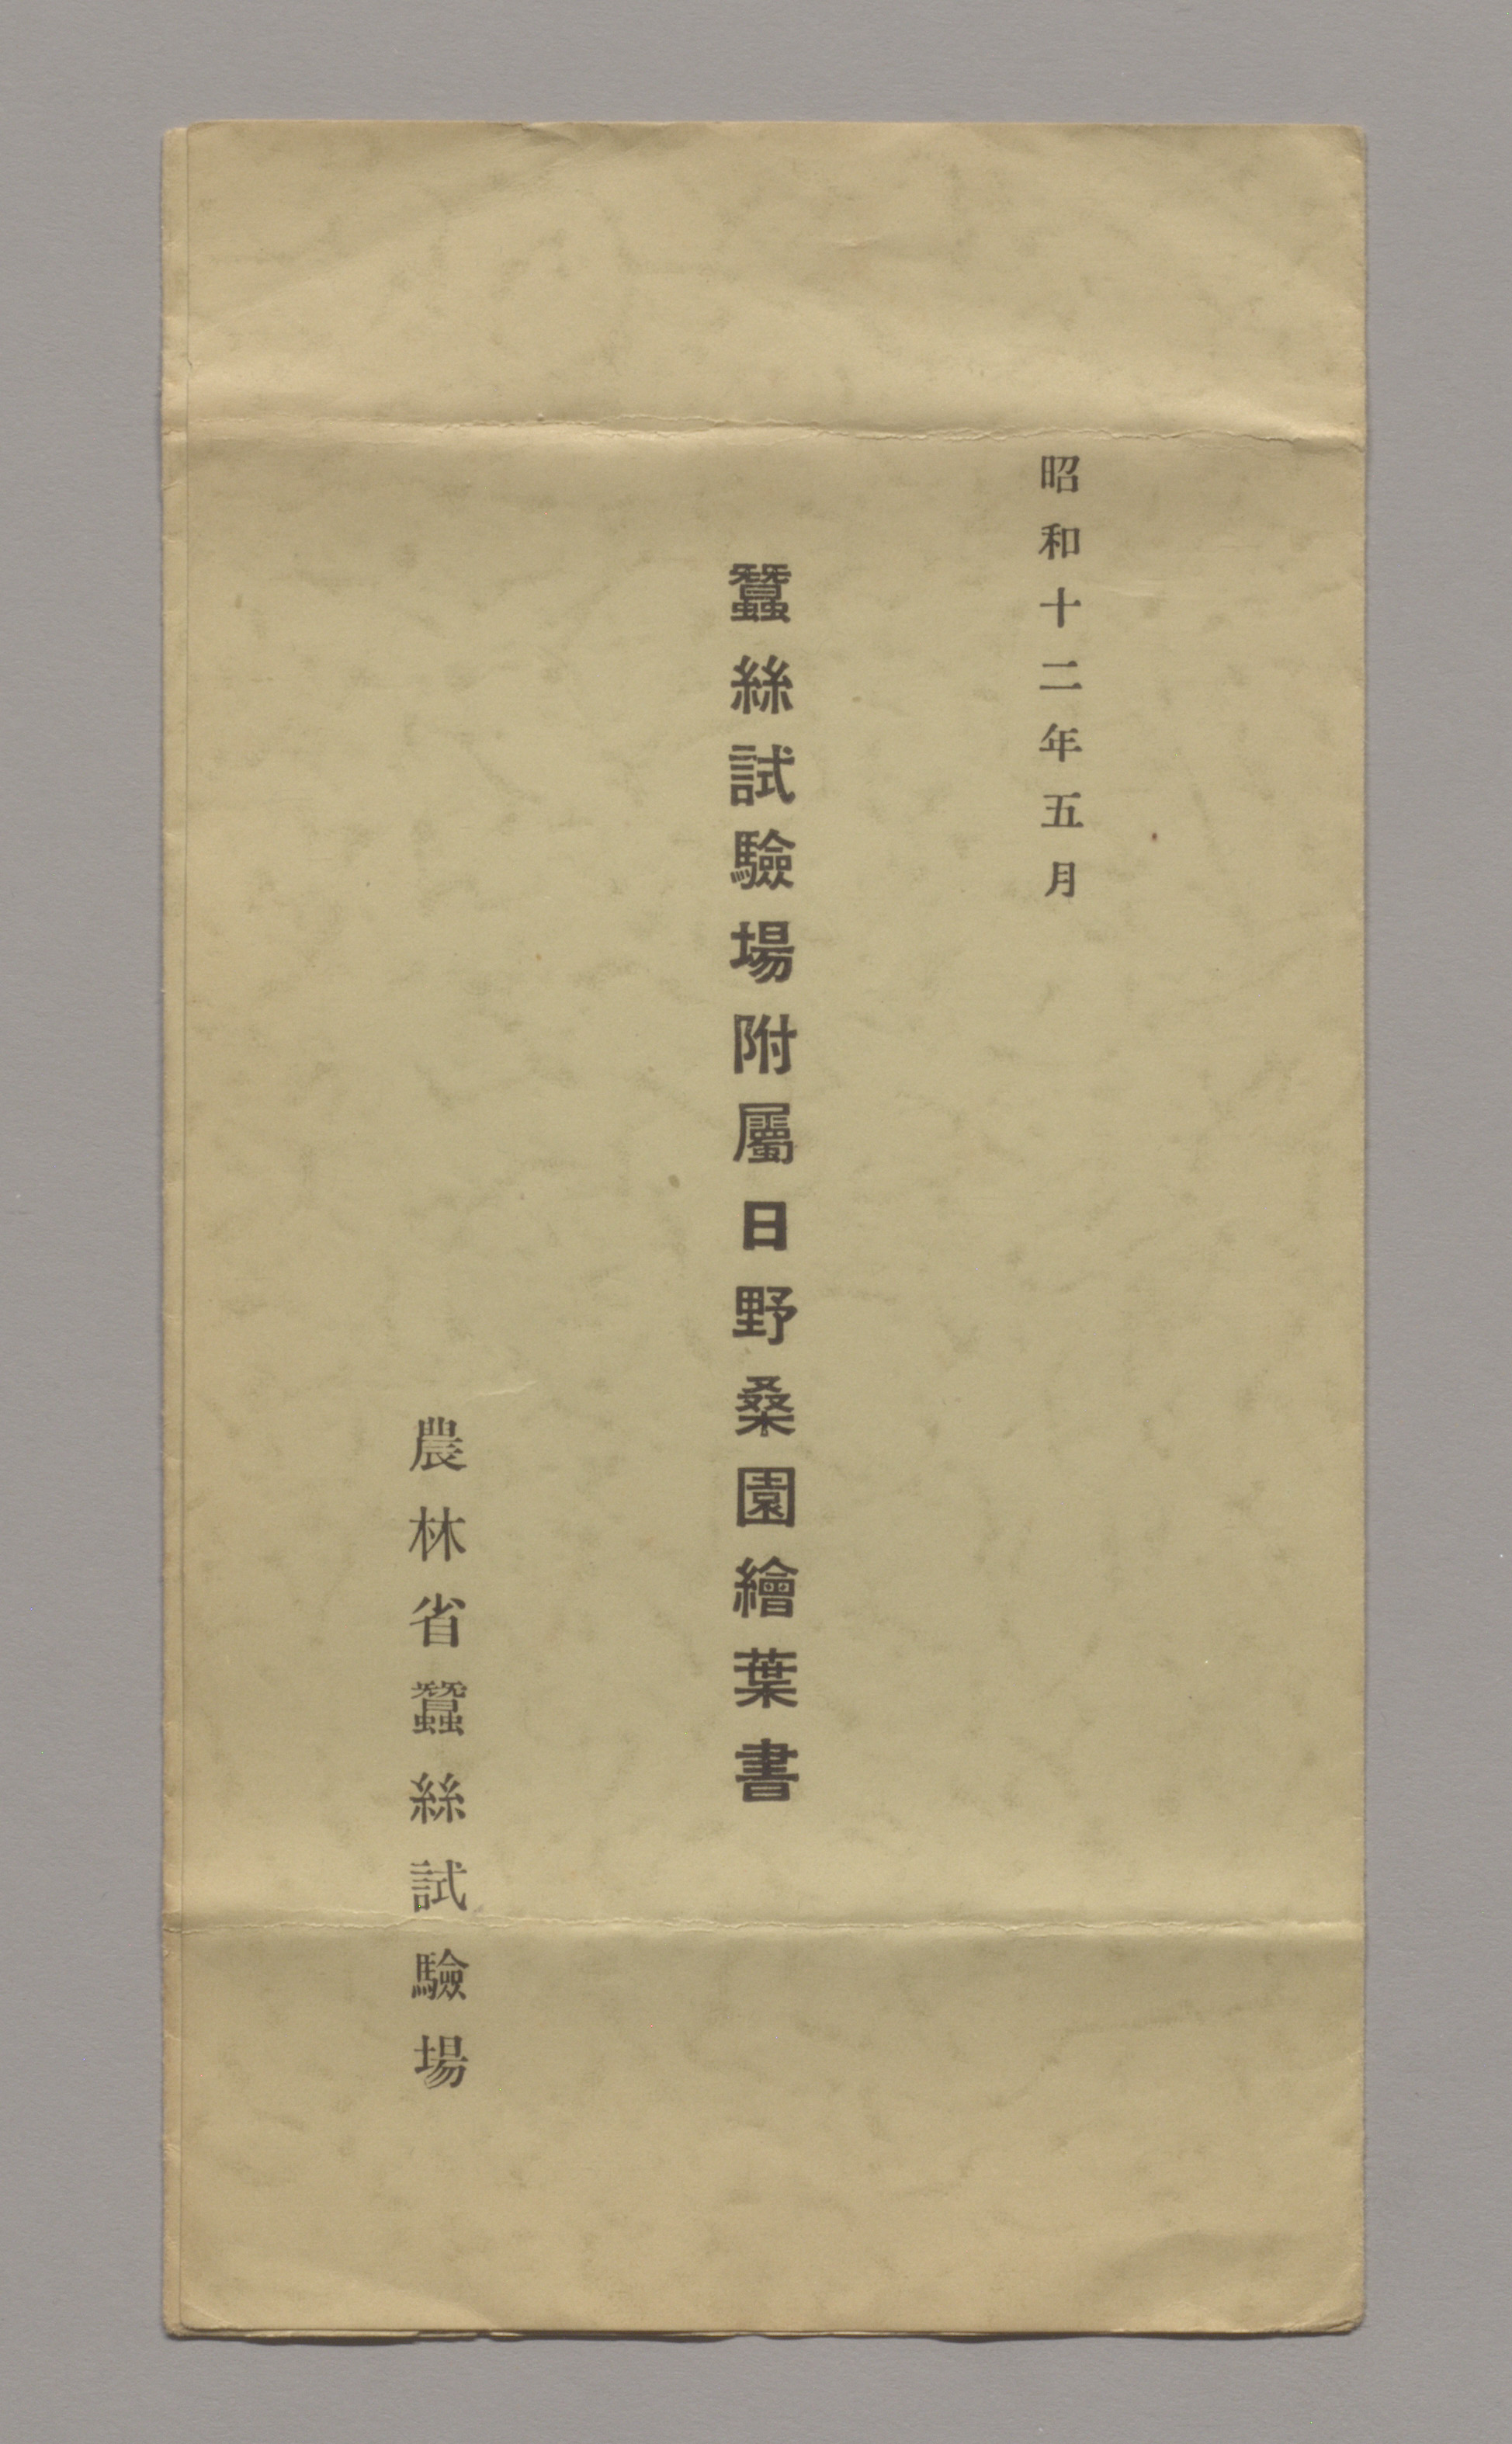 昭和十二年五月
蠶絲試驗場附屬日野桑園繪葉書
農林省蠶絲試驗場